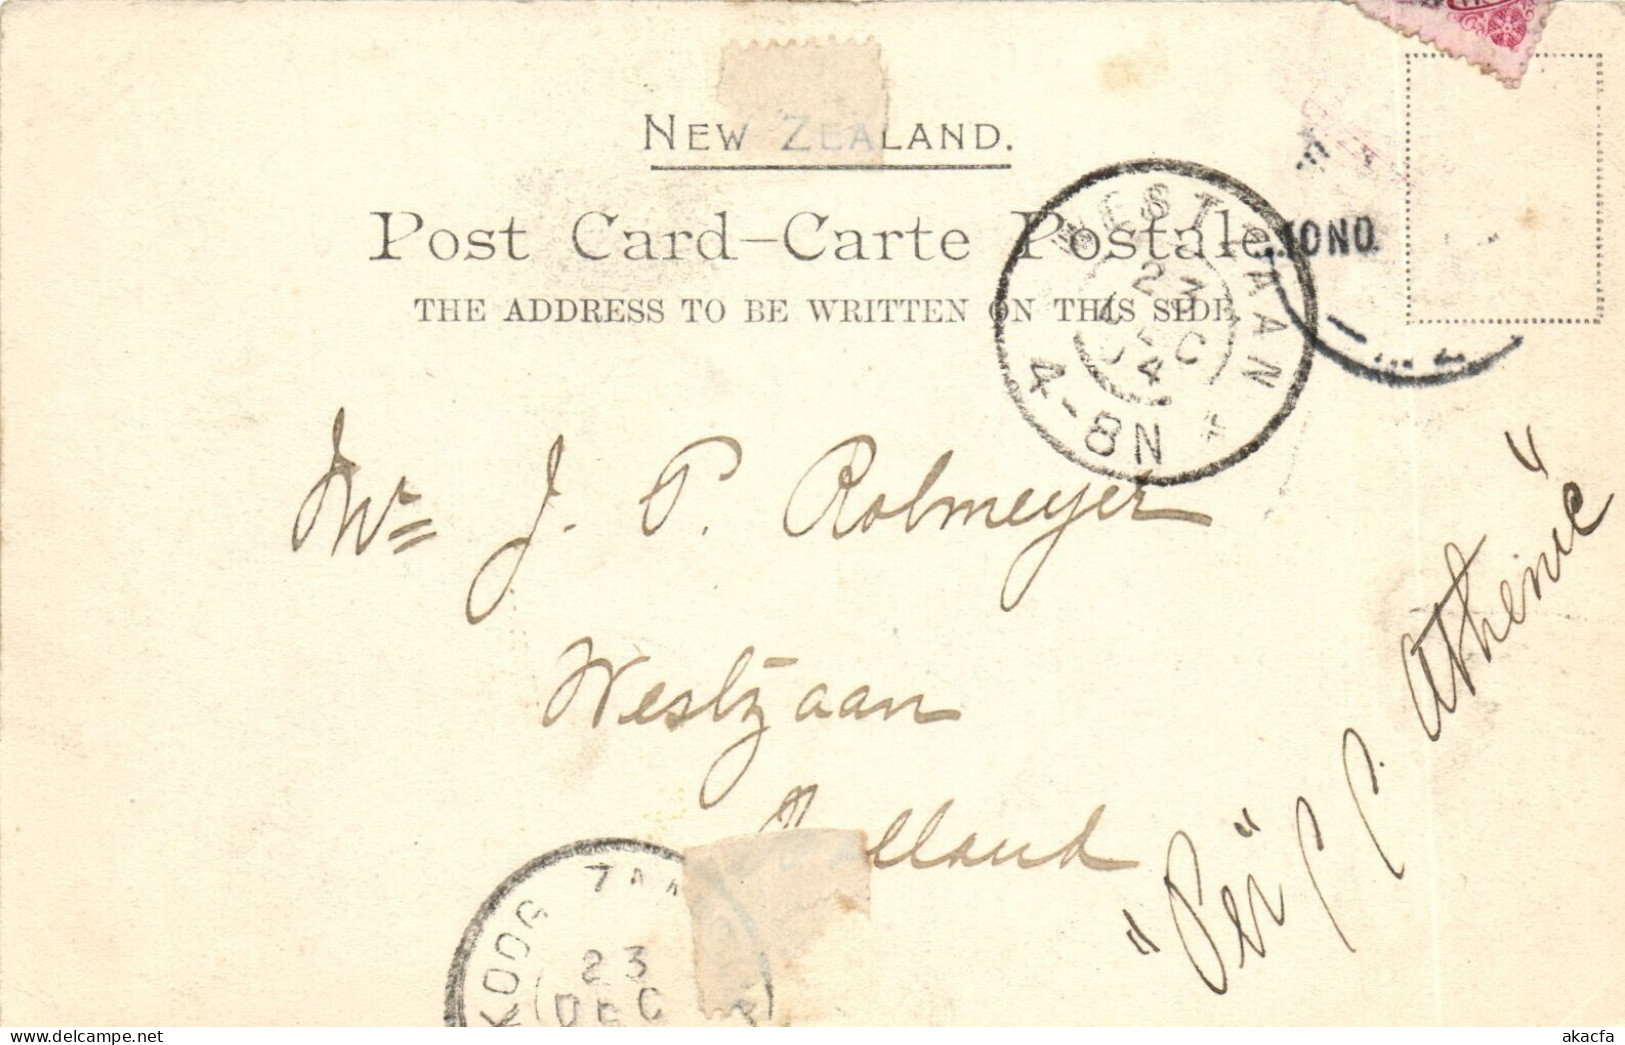 NEW ZEALAND.
Post Card–Carte Postale
THE ADDRESS TO BE WRITTEN ON THIS SIDE
WESTZAAN
23
DEC
04
4-8N
Mr J. P. Rolmeyer
Westzaan
Holland
"Per" 
Athenic"
KOOG ZAAN
23
DEC
delcampe.net
akacfa